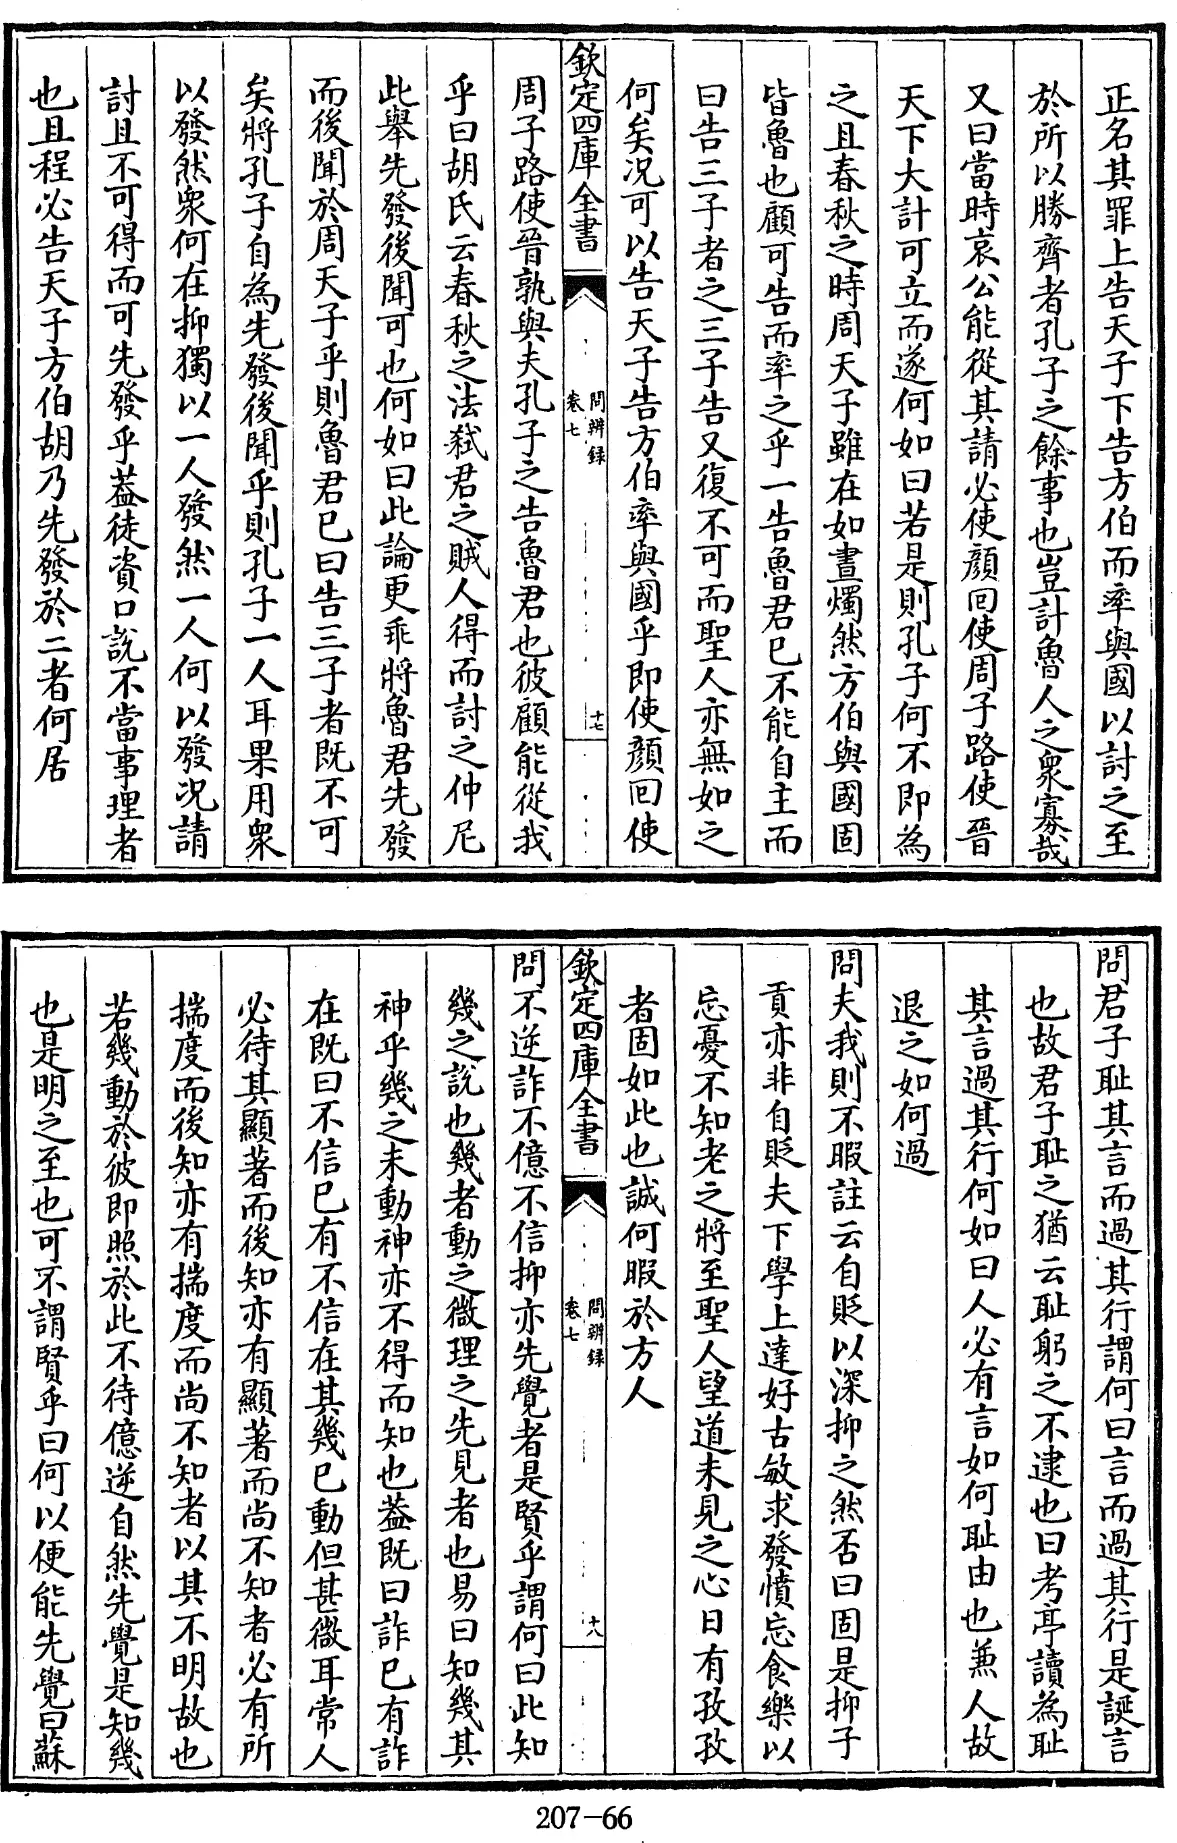 正名其罪上告天子下告方伯而率與國以討之至
於所以勝齊者孔子之餘事也豈計魯人之衆寡哉
又曰當時哀公能從其請必使顔回使周子路使晉
天下大計可立而遂何如曰若是則孔子何不即為
之且春秋之時周天子雖在如晝燭然方伯與國固
皆魯也顧可告而率之乎一告魯君已不能自主而
曰告三子者之三子告又復不可而聖人亦無如之
何矣况可以告天子告方伯率與國乎即使顔回使
欽定四庫全書
問辨録
卷七
十七
周子路使晉孰與夫孔子之告魯君也彼顧能從我
乎曰胡氏云春秋之法弑君之賊人得而討之仲尼
此舉先發後聞可也何如曰此論更乖將魯君先發
而後聞於周天子乎則魯君已曰告三子者既不可
矣將孔子自為先發後聞乎則孔子一人耳果用衆
以發然衆何在抑獨以一人發然一人何以發况請
討且不可得而可先發乎葢徒資口説不當事理者
也且程必告天子方伯胡乃先發於二者何居
問君子耻其言而過其行謂何曰言而過其行是誕言
也故君子耻之猶云耻躬之不逮也曰考亭讀為耻
其言過其行何如曰人必有言如何耻由也兼人故
退之如何過
問夫我則不暇註云自貶以深抑之然否曰固是抑子
貢亦非自貶夫下學上達好古敏求發憤忘食樂以
忘憂不知老之將至聖人望道未見之心日有孜孜
者固如此也誠何暇於方人
欽定四庫全書
問辨録
卷七
十八
問不逆詐不億不信抑亦先覺者是賢乎謂何曰此知
幾之説也幾者動之微理之先見者也易曰知幾其
神乎幾之未動神亦不得而知也葢既曰詐已有詐
在既曰不信已有不信在其幾已動但甚微耳常人
必待其顯著而後知亦有顯著而尚不知者必有所
揣度而後知亦有揣度而尚不知者以其不明故也
若幾動於彼即照於此不待億逆自然先覺是知幾
也是明之至也可不謂賢乎曰何以便能先覺曰蘇
207-66